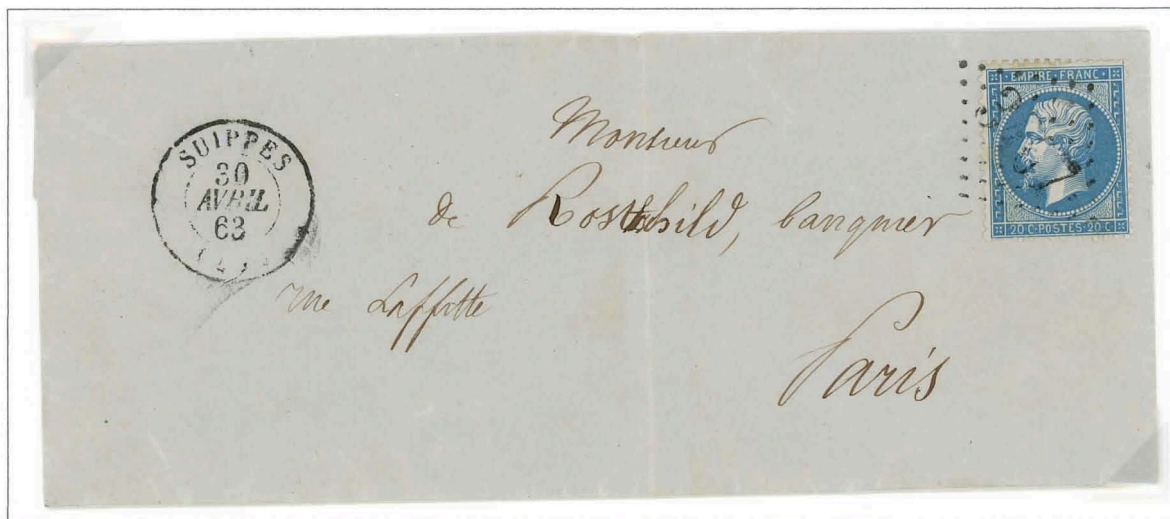 SUIPPES
30
AVRIL
63
EMPIRE·FRANC·
20 C·POSTES·20 C
Monsieur
de Rosthhild, banquier
rue Laffitte
Paris